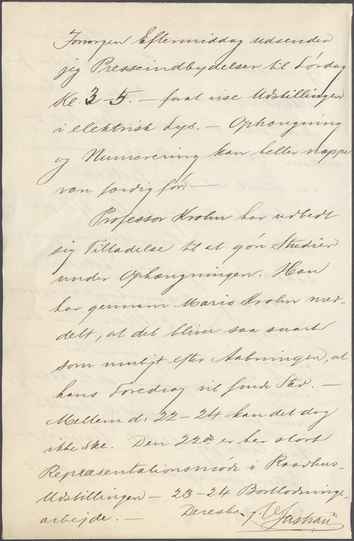 Imorgen Eftermiddag udsender
jeg Presseindbydelser til Lørdag
Kl. 3-5. — for at vise Udstillingen
i elektrisk Lys. — Ophængning
og Numerering kan heller næppe
være færdig før. —
Professor Krohn har udbedt
sig Tilladelse til at gøre Studier
under Ophængningen. Han
har gennem Mario Krohn med-
delt, at det bliver saa snart
som muligt efter Aabningen, at
hans Foredrag vil finde Sted. —
Mellem d. 22-24 kan det dog
ikke ske. Den 22de er her stort
Repræsentationsmøde i Raadhus-
Udstillingen — 23-24 Bortlodnings-
arbejde. — Deres